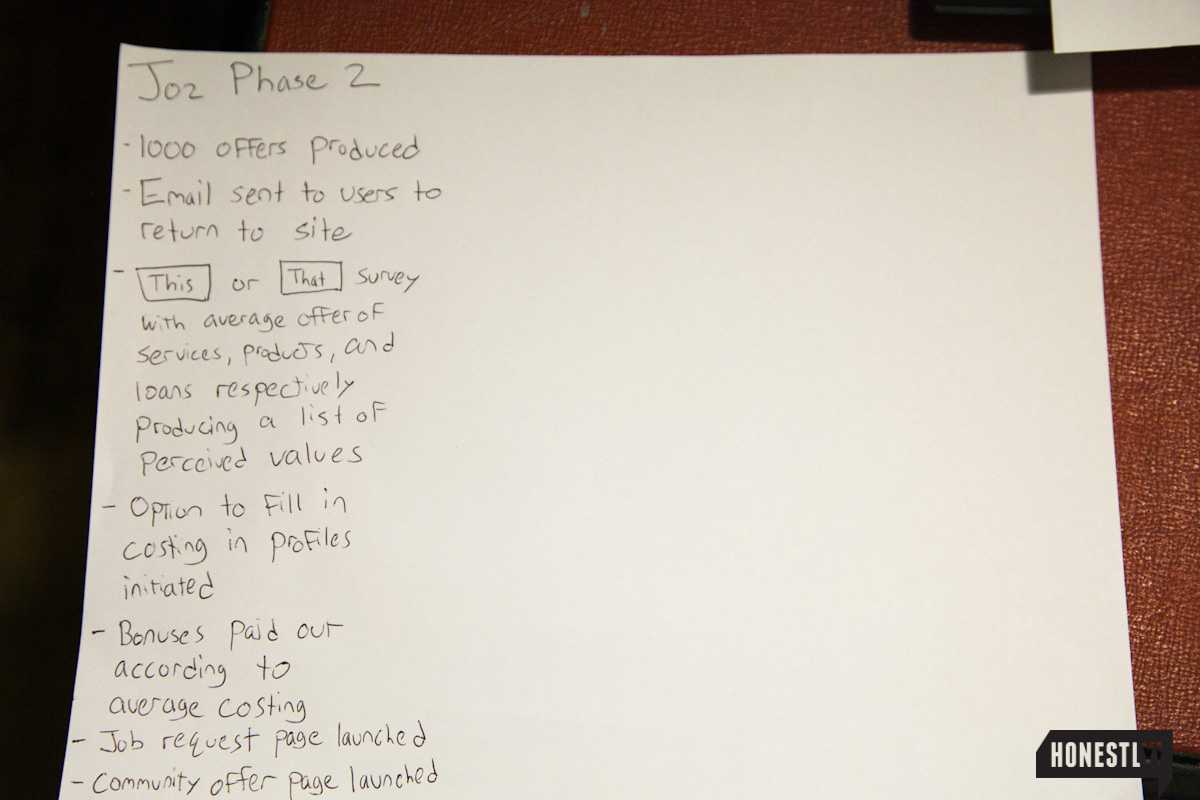 Joz Phase 2
- 1000 offers Produced
- Email sent to users to
return to site
- This or That Survey
with average offer of
services, products, and
loans respectively
Producing a list of
Perceived values
- Option to Fill in
costing in Profiles
initiated
- Bonuses Paid out
according to
average costing
- Job request page launched
- Community offer page launched
HONESTLY!